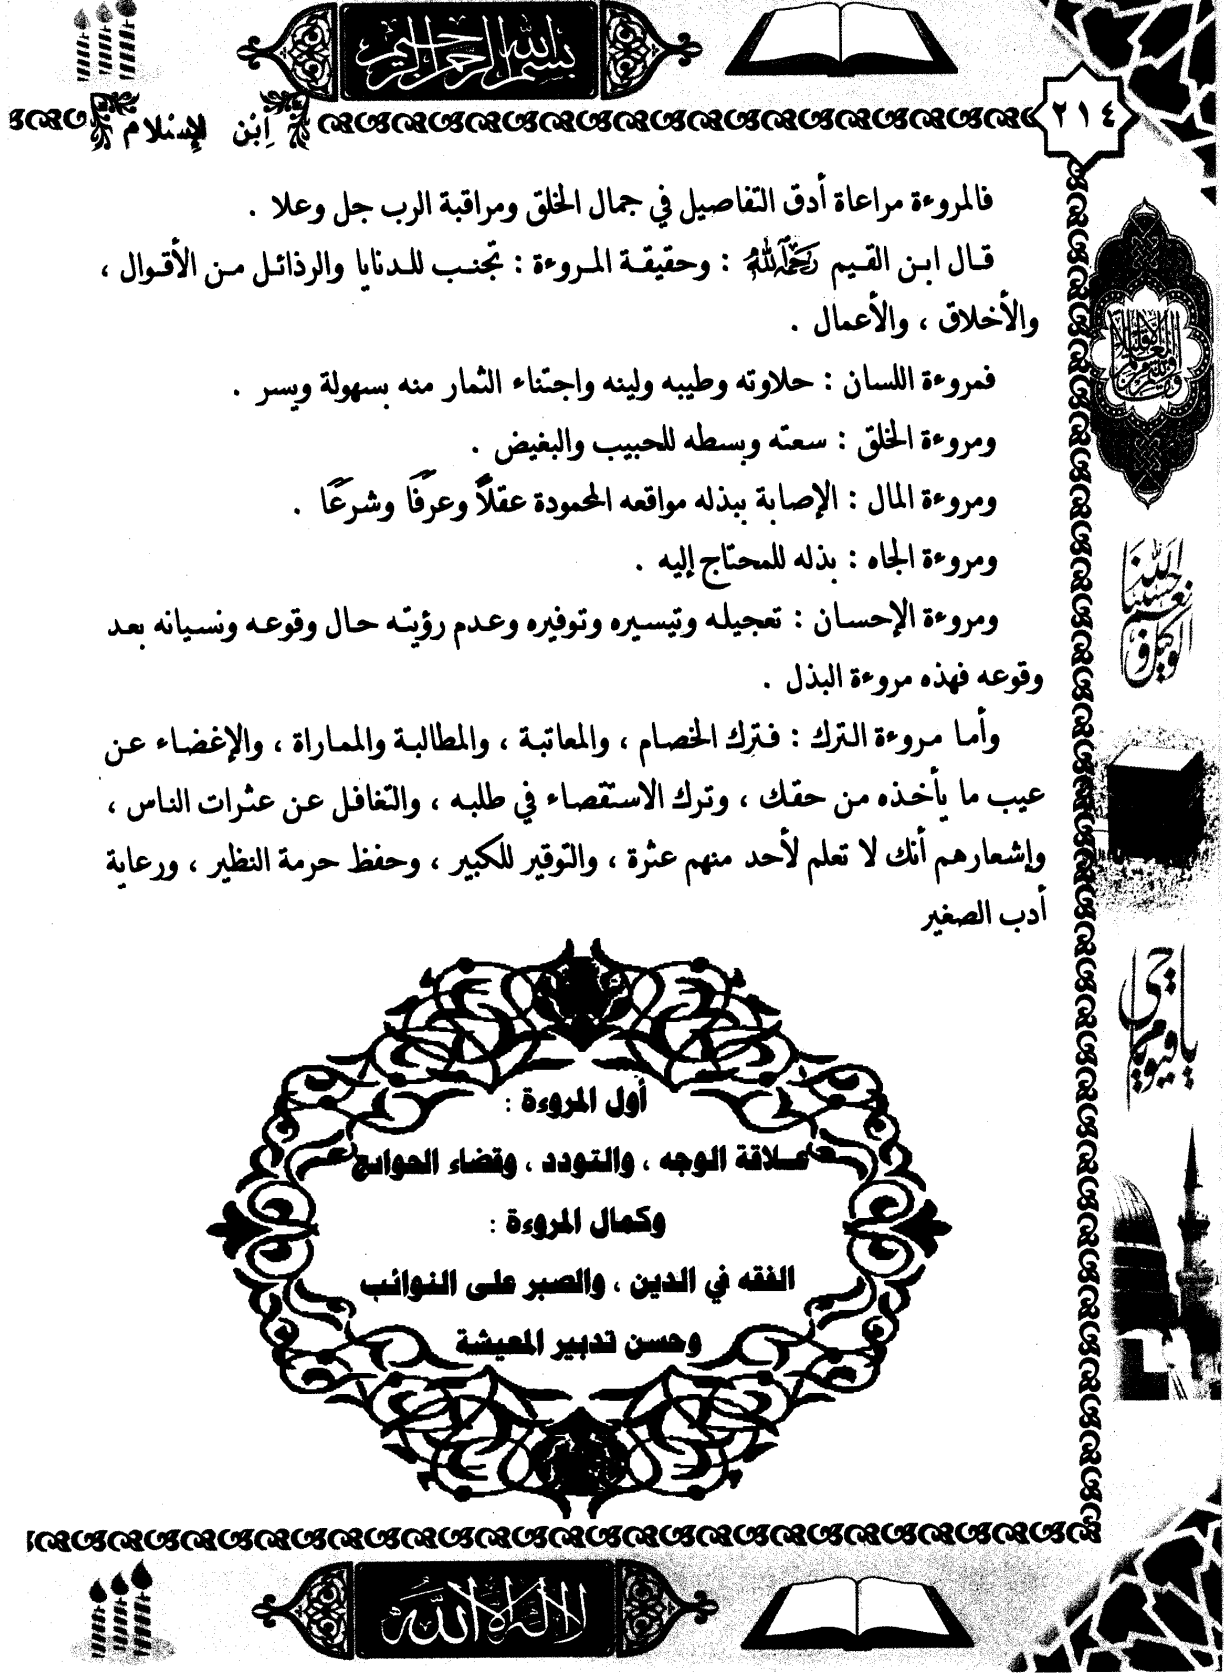 بسم الله الرحمن الرحيم
٢١٤
اِبْن الإسْلام
فالمروءة مراعاة أدق التفاصيل في جمال الخلق ومراقبة الرب جل وعلا .
قال ابن القيم رَحِمَهُ اللهُ : وحقيقة المروءة : تجنب للدنايا والرذائل من الأقوال ،
والأخلاق ، والأعمال .
فمروءة اللسان : حلاوته وطيبه ولينه واجتناء الثمار منه بسهولة ويسر .
ومروءة الخلق : سعته وبسطه للحبيب والبغيض .
ومروءة المال : الإصابة ببذله مواقعه المحمودة عقلاً وعرفًا وشرعًا .
ومروءة الجاه : بذله للمحتاج إليه .
ومروءة الإحسان : تعجيله وتيسيره وتوفيره وعدم رؤيته حال وقوعه ونسيانه بعد
وقوعه فهذه مروءة البذل .
وأما مروءة الترك : فترك الخصام ، والمعاتبة ، والمطالبة والمماراة ، والإغضاء عن
عيب ما يأخذه من حقك ، وترك الاستقصاء في طلبه ، والتغافل عن عثرات الناس ،
وإشعارهم أنك لا تعلم لأحد منهم عثرة ، والتوقير للكبير ، وحفظ حرمة النظير ، ورعاية
أدب الصغير
أول المروءة :
طلاقة الوجه ، والتودد ، وقضاء الحوائج
وكمال المروءة :
الفقه في الدين ، والصبر على النوائب
وحسن تدبير المعيشة
حسبنا الله ونعم الوكيل
يا حي يا قيوم
لا إله إلا الله